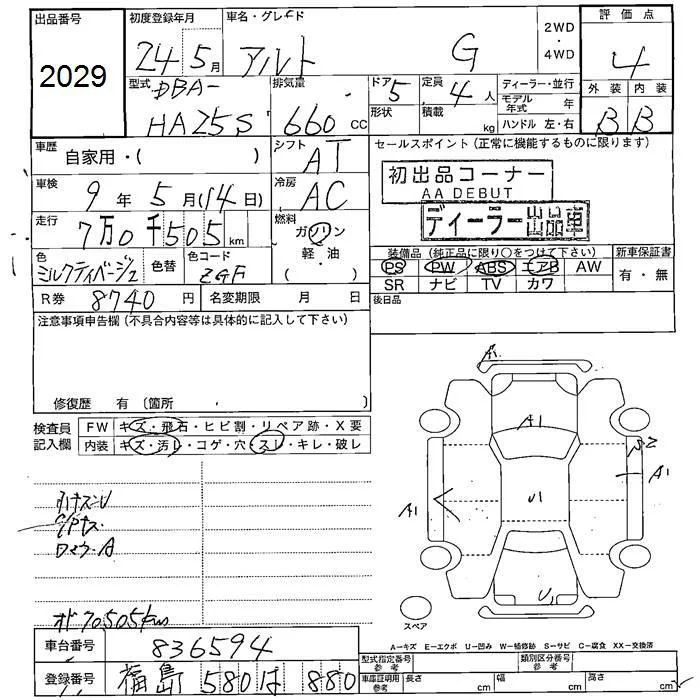 出品番号 2029
初度登録年月 24年 5月
車名・グレード アルト G
2WD・4WD
評価点 4
外装 B 内装 B
型式 DBA- HA25S
排気量 660 CC
ドア 5
形状
定員 4 人
積載 kg
ディーラー・並行
モデル年式 年
ハンドル 左・右
車歴 自家用・( )
シフト AT
セールスポイント (正常に機能するものに限ります)
初出品コーナー
AA DEBUT
ディーラー出品車
車検 9 年 5 月(14日)
冷房 AC
走行 7万0千505 km
燃料 ガソリン
軽・油
( )
色 ミルクティベージュ
色替
色コード ZGF
装備品 (純正品に限り○をつけて下さい)
新車保証書
PS PW ABS エアB AW
有・無
SR ナビ TV カワ
R券 8740 円
名変期限 月 日
後日品
注意事項申告欄 (不具合内容等は具体的に記入して下さい)
修復歴 有 〔箇所 〕
検査員記入欄
FW キズ・飛石・ヒビ割・リペア跡・X要
内装 キズ・汚レ・コゲ・穴・スレ・キレ・破レ
A1
A1
U1
A1
A1
S2
U1
オド70,505km
スペア
A=キズ E=エクボ U=凹み W=補修跡 S=サビ C=腐食 XX=交換済
車台番号 836594
登録番号 福島 580 は 880
型式指定番号 参考
類別区分番号 参考
車庫証明用 参考 長さ cm 幅 cm 高さ cm